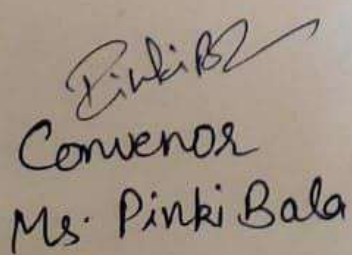 Pinki B
Convenor
Ms. Pinki Bala